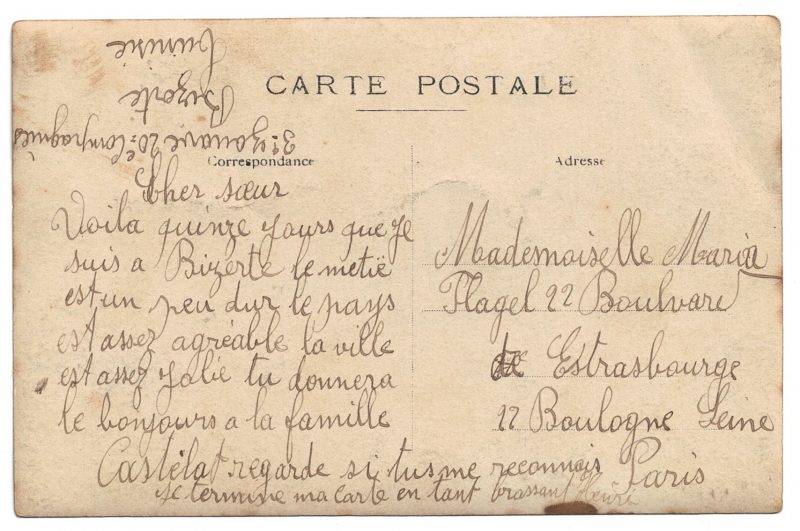 CARTE POSTALE
Correspondance
Adresse
3e zouave 20e Compragnies
Bizerte
Tunisie
Cher sœur
Voila quinze yours que je
suis a Bizerte le metië
est un peu dur le pays
est assez agréable la ville
est assez yolie tu donnera
le bonjours a la famille
Castélat regarde si tus me reconnais
je termine ma carte en tant brassant Henri
Mademoiselle Maria
Flagel 22 Boulvard
de Estrasbourge
22 Boulogne Seine
Paris